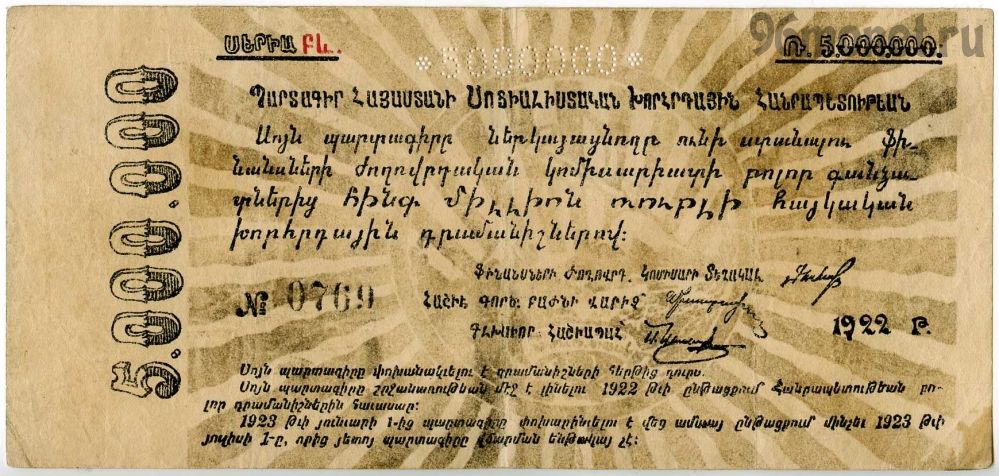 ՍԵՐԻԱ ԲԼ.
*5000000*
Ռ. 5.000.000.
96monet.ru
5.000.000
ՊԱՐՏԱԳԻՐ ՀԱՅԱՍՏԱՆԻ ՍՈՑԻԱԼԻՍՏԱԿԱՆ ԽՈՐՀՐԴԱՅԻՆ ՀԱՆՐԱՊԵՏՈՒԹԵԱՆ
Սոյն պարտագիրը ներկայացնողը ունի ստանալու ֆի-
նանսների ժողովրդական կոմիսարիատի բոլոր գանձա-
տներից հինգ միլլիոն ռուբլի հայկական
խորհրդային դրամանիշներով:
ՖԻՆԱՆՍՆԵՐԻ ԺՈՂՈՎՐԴ. ԿՈՄԻՍԱՐԻ ՏԵՂԱԿԱԼ
№ 0769
ՀԱՇԻՒ ԳՈՐԾ. ԲԱԺՆԻ ՎԱՐԻՉ
ԳԼԽԱՒՈՐ ՀԱՇԻՒԱՊԱՀ
1922 Թ.
Սոյն պարտագիրը փոխանակելու է դրամանիշների հերթից դուրս.
Սոյն պարտագիրը շրջանառութեան մէջ է լինելու 1922 թւի ընթացքում Հանրապետութեան բո-
լոր դրամանիշներին հաւասար:
1923 թւի յունւարի 1-ից պարտագիրը փոխարինելու է վեց ամսւայ ընթացքում մինչեւ 1923 թւի
յուլիսի 1-ը, որից յետոյ պարտագիրը վճարման ենթակայ չէ: